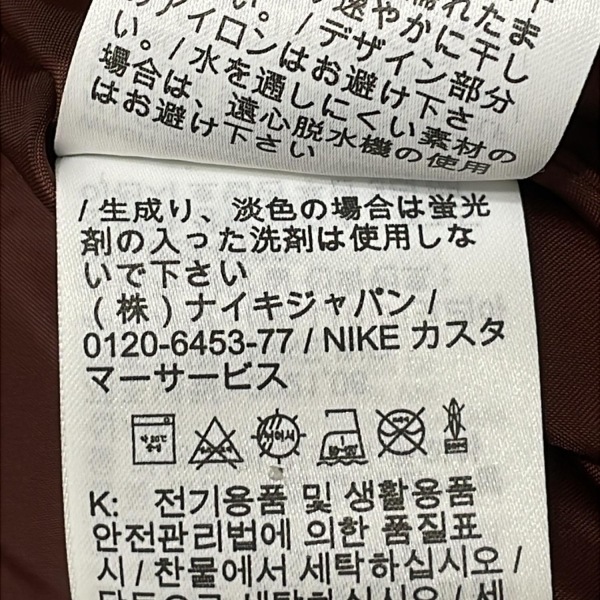 濡れたま
速やかに干し
い。/ デザイン部分
アイロンはお避け下さ
い。/ 水を通しにくい素材の
場合は、遠心脱水機の使用
はお避け下さい
/ 生成り、淡色の場合は蛍光
剤の入った洗剤は使用しな
いで下さい
(株) ナイキジャパン /
0120-6453-77 / NIKE カスタ
マーサービス
약 30℃
중성
뉘어서
K: 전기용품 및 생활용품
안전관리법에 의한 품질표
시 / 찬물에서 세탁하십시오 /